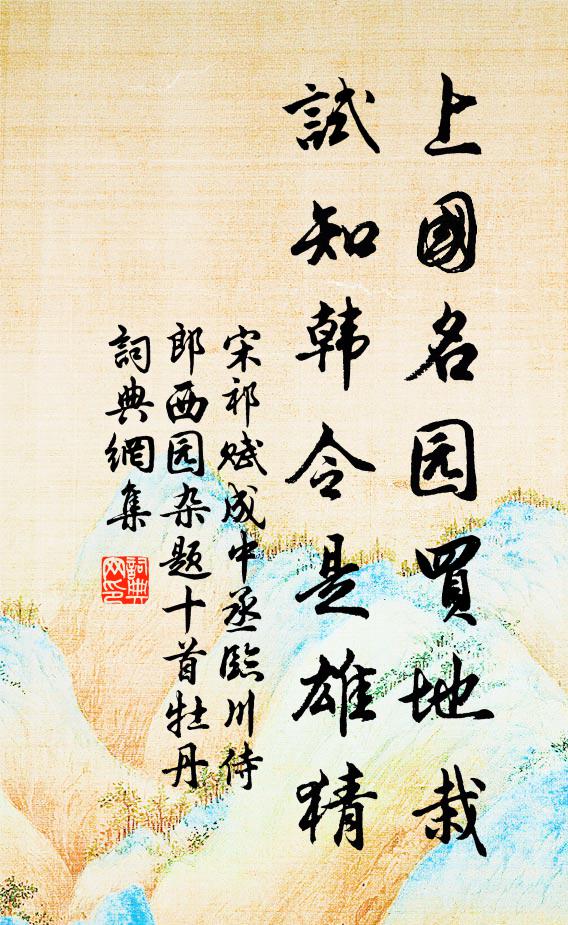 上國名园買地栽
試知韩令是雄猜
宋祁赋成中丞臨川侍
郎西园杂题十首牡丹
詞典網集
詞典網印